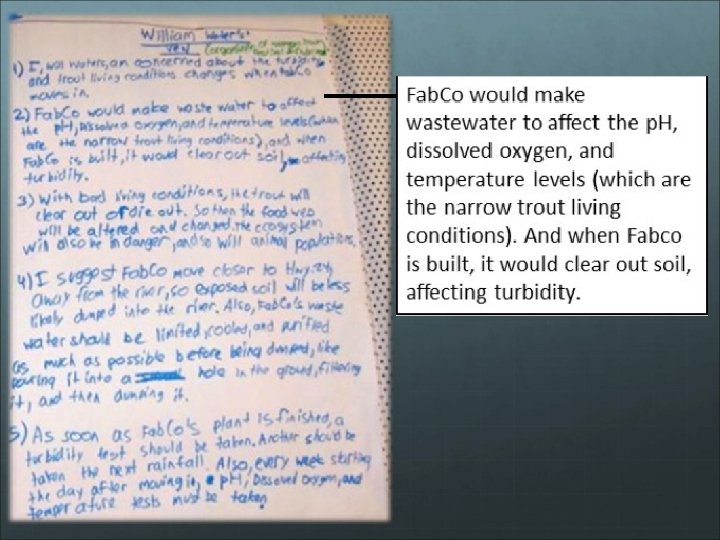 William Water's
VEN
1) I, Will Waters, am concerned about the turbidity
and trout living conditions changes when FabCo
moves in.
2) FabCo would make waste water to affect
the pH, Dissolved oxygen, and temperature levels (which
are the narrow trout living conditions), and when
FabCo is built, it would clear out soil, affecting
turbidity.
3) With bad living conditions, the trout will
clear out or die out. So then the food web
will be altered and changed. The ecosystem
will also be in danger, and so will animal populations.
4) I suggest FabCo move closer to Hwy. 24,
away from the river, so exposed soil will be less
likely dumped into the river. Also, FabCo's waste
water should be limited, cooled, and purified
as much as possible before being dumped, like
pouring it into a hole in the ground, filtering
it, and then dumping it.
5) As soon as FabCo's plant is finished, a
turbidity test should be taken. Another should be
taken the next rainfall. Also, every week starting
the day after moving in, pH, Dissolved Oxygen, and
temperature tests must be taken.
FabCo would make
wastewater to affect the pH,
dissolved oxygen, and
temperature levels (which are
the narrow trout living
conditions). And when Fabco
is built, it would clear out soil,
affecting turbidity.